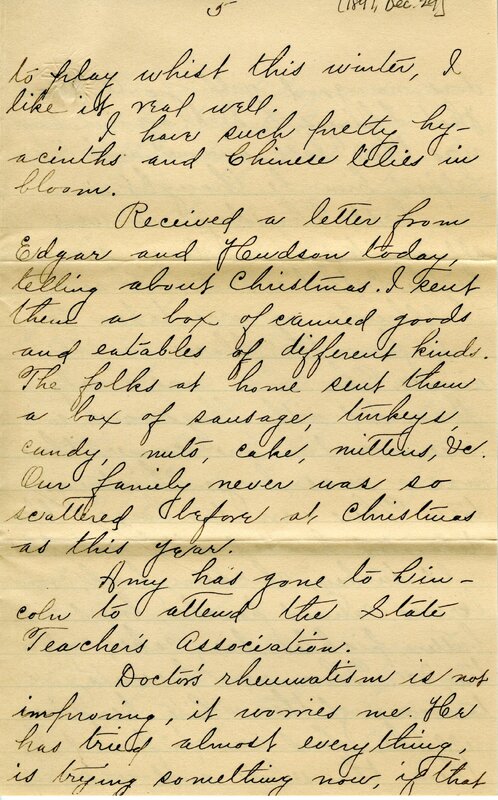 5
[1897, Dec. 29]
to play whist this winter, I
like it real well.
I have such pretty hy-
acinths and Chinese lilies in
bloom.
Received a letter from
Edgar and Hudson today,
telling about Christmas. I sent
them a box of canned goods
and eatables of different kinds.
The folks at home sent them
a box of sausage, turkeys,
candy, nuts, cake, mittens, &c.
Our family never was so
scattered before at Christmas
as this year.
Amy has gone to Lin-
coln to attend the State
Teacher's Association.
Doctor's rheumatism is not
improving, it worries me. He
has tried almost everything,
is trying something now, if that